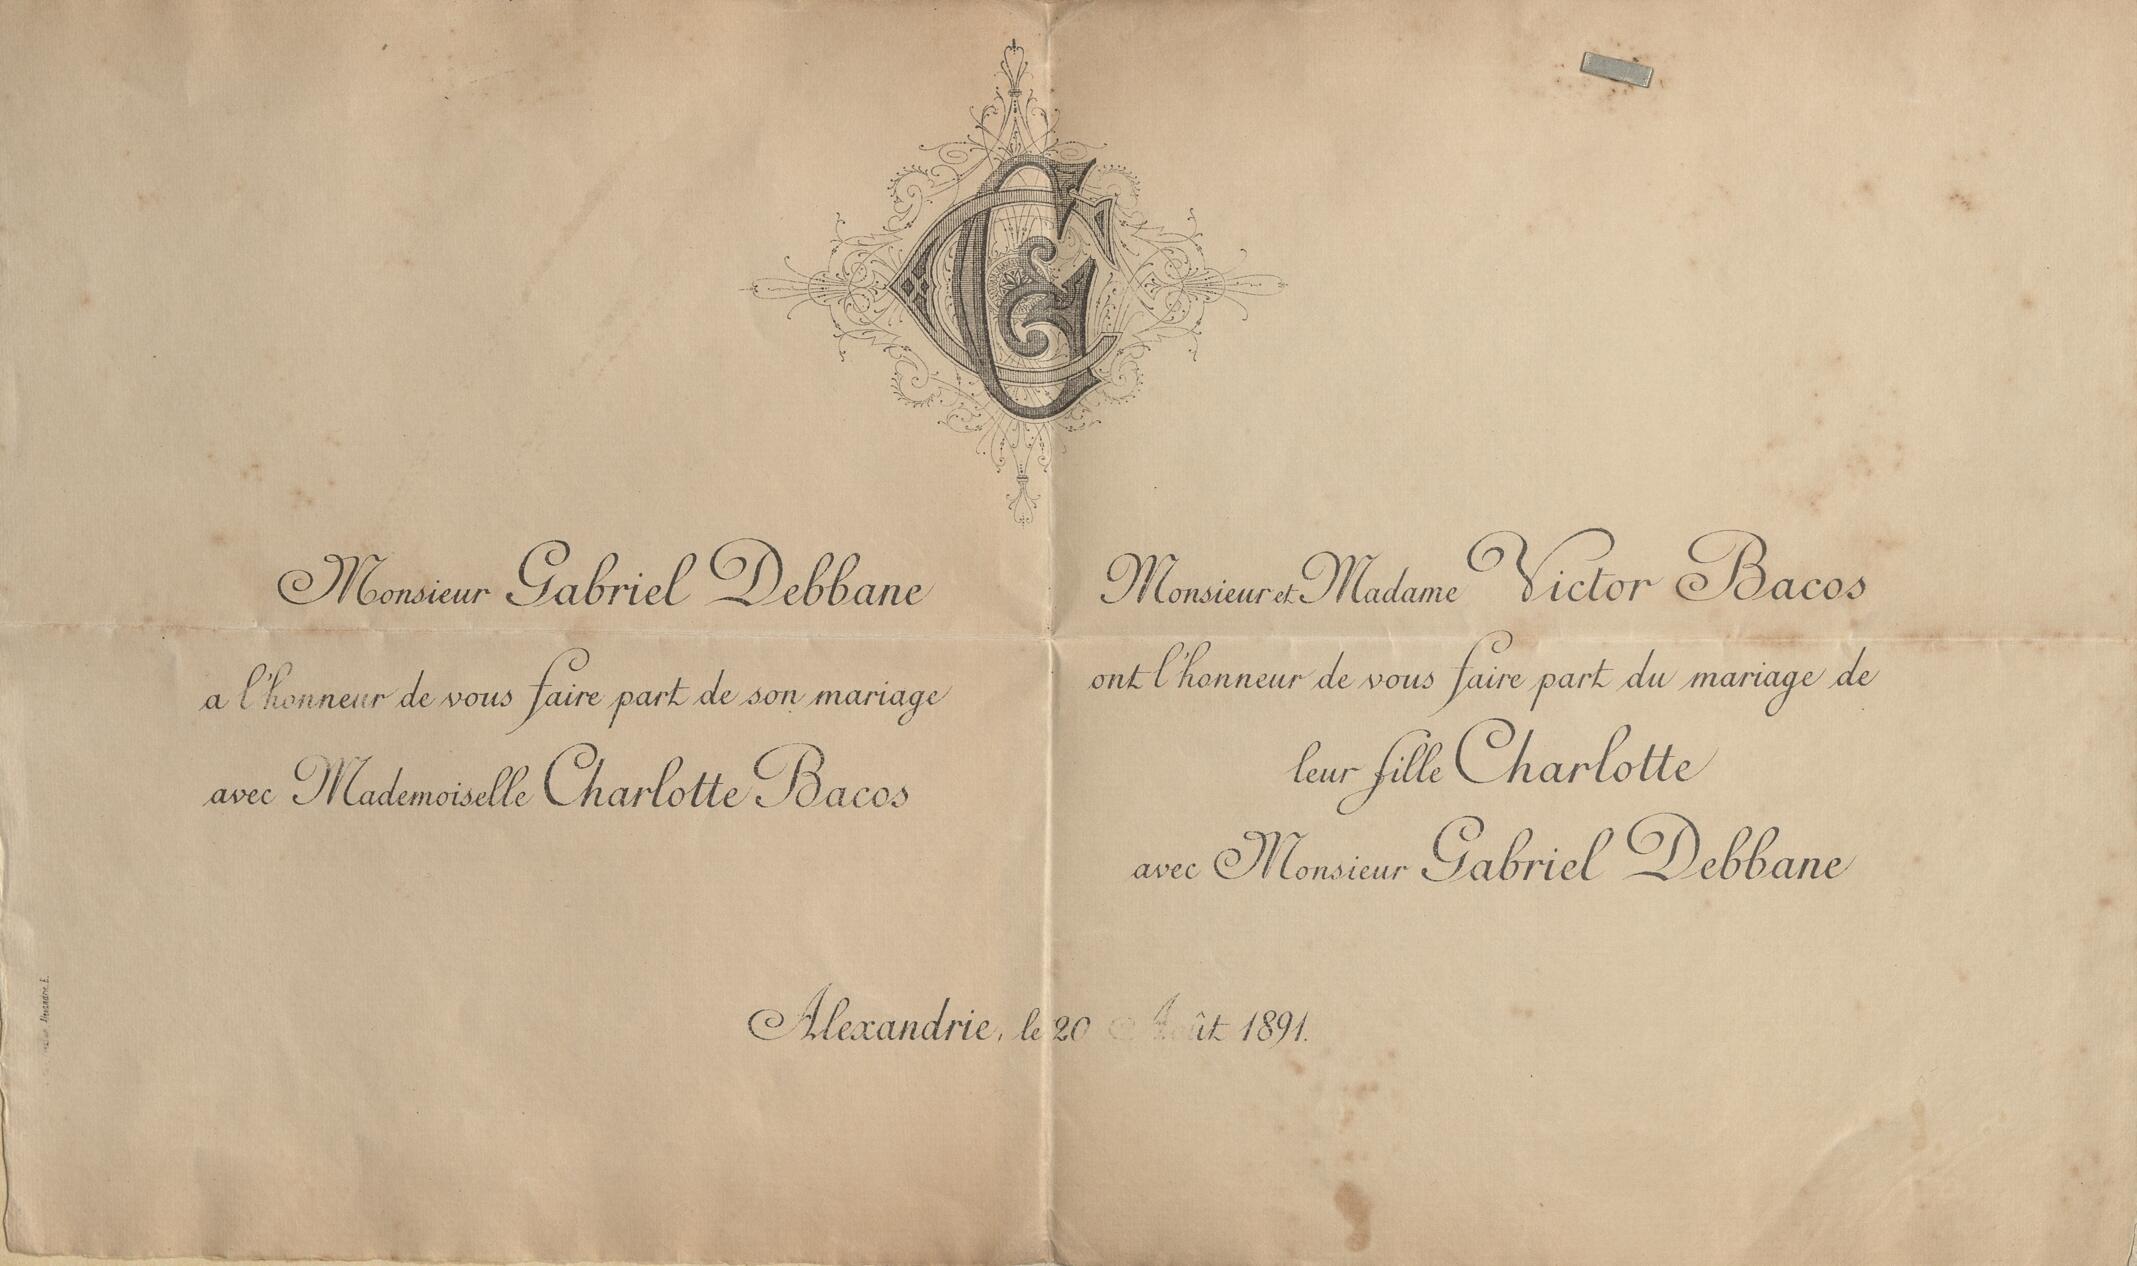 GC
Monsieur Gabriel Debbane
a l'honneur de vous faire part de son mariage
avec Mademoiselle Charlotte Bacos
Monsieur et Madame Victor Bacos
ont l'honneur de vous faire part du mariage de
leur fille Charlotte
avec Monsieur Gabriel Debbane
Alexandrie, le 20 Août 1891.
Alexandrie E.